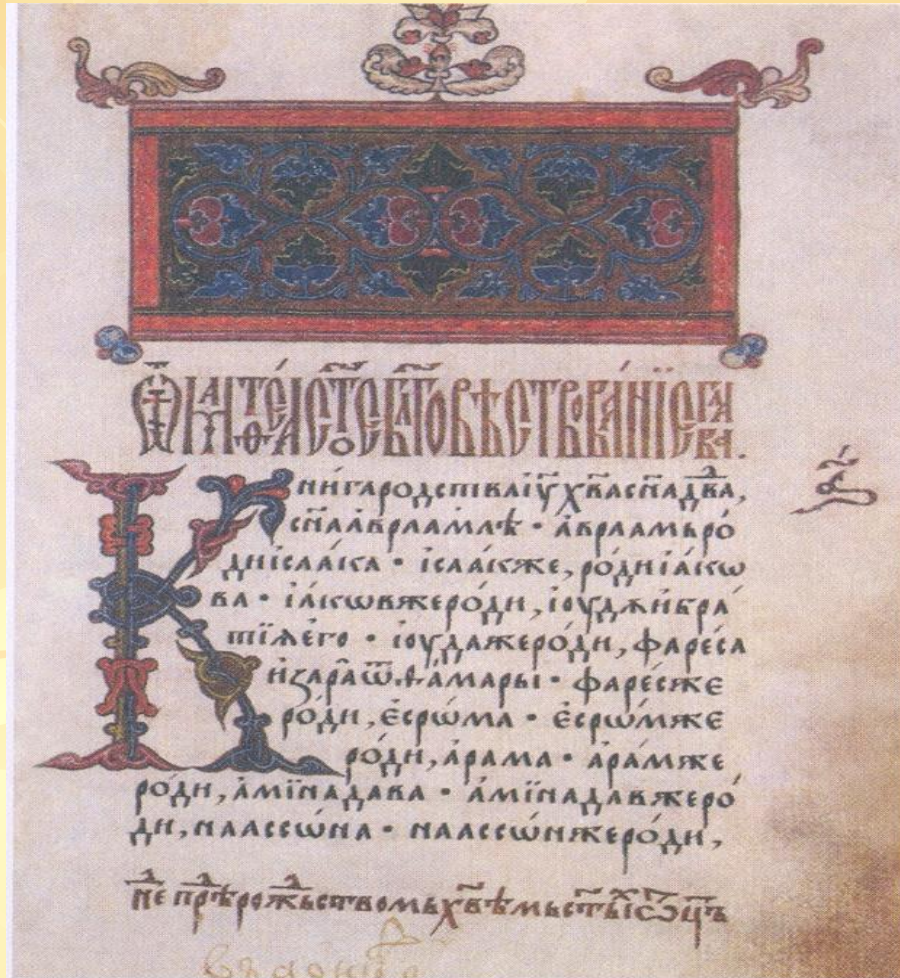 Ѿ МАТѲЕА СТОЕ БЛГОВѢСТВОВАНІЕ ГЛАВА.
Кни́га родства і҆у х҃ва сн҃а дв҃а,
сн҃а а҆враамлѣ · а҆враамь ро́
ди і҆саа́ка · і҆саа́кже, ро́ди і҆а́кѡ
ва · і҆а́кѡвжеро́ди, і҆ꙋ́дѫ и҆ бра́
тїѧ е҆го̀ · і҆ꙋ́дажеро́ди, фаре́са
и҆ зара ѿ ѳа́мары · фаре́сже
ро́ди, е҆срѡ́ма · е҆срѡ́мже
ро́ди, а҆рама · а҆ра́мже
ро́ди, а҆мїнада́ва · а҆мїнада́вжеро́
ди, наассѡ́на · наассѡ́нжеро́ди,